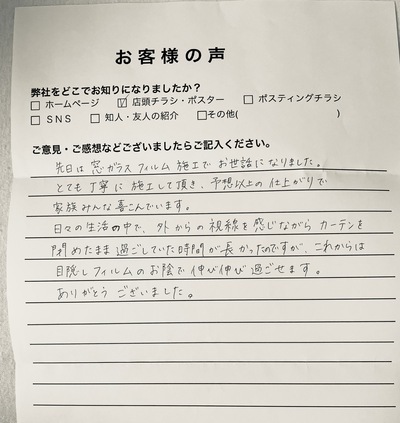 お客様の声
弊社をどこでお知りになりましたか？
□ ホームページ ☑ 店頭チラシ・ポスター □ ポスティングチラシ
□ SNS □ 知人・友人の紹介 □その他( )
ご意見・ご感想などございましたらご記入ください。
先日は窓ガラスフィルム施工でお世話になりました。
とても丁寧に施工して頂き、予想以上の仕上がりで
家族みんな喜こんでいます。
日々の生活の中で、外からの視線を感じながらカーテンを
閉めたまま過ごしていた時間が長かったのですが、これからは
目隠しフィルムのお陰で伸び伸び過ごせます。
ありがとうございました。